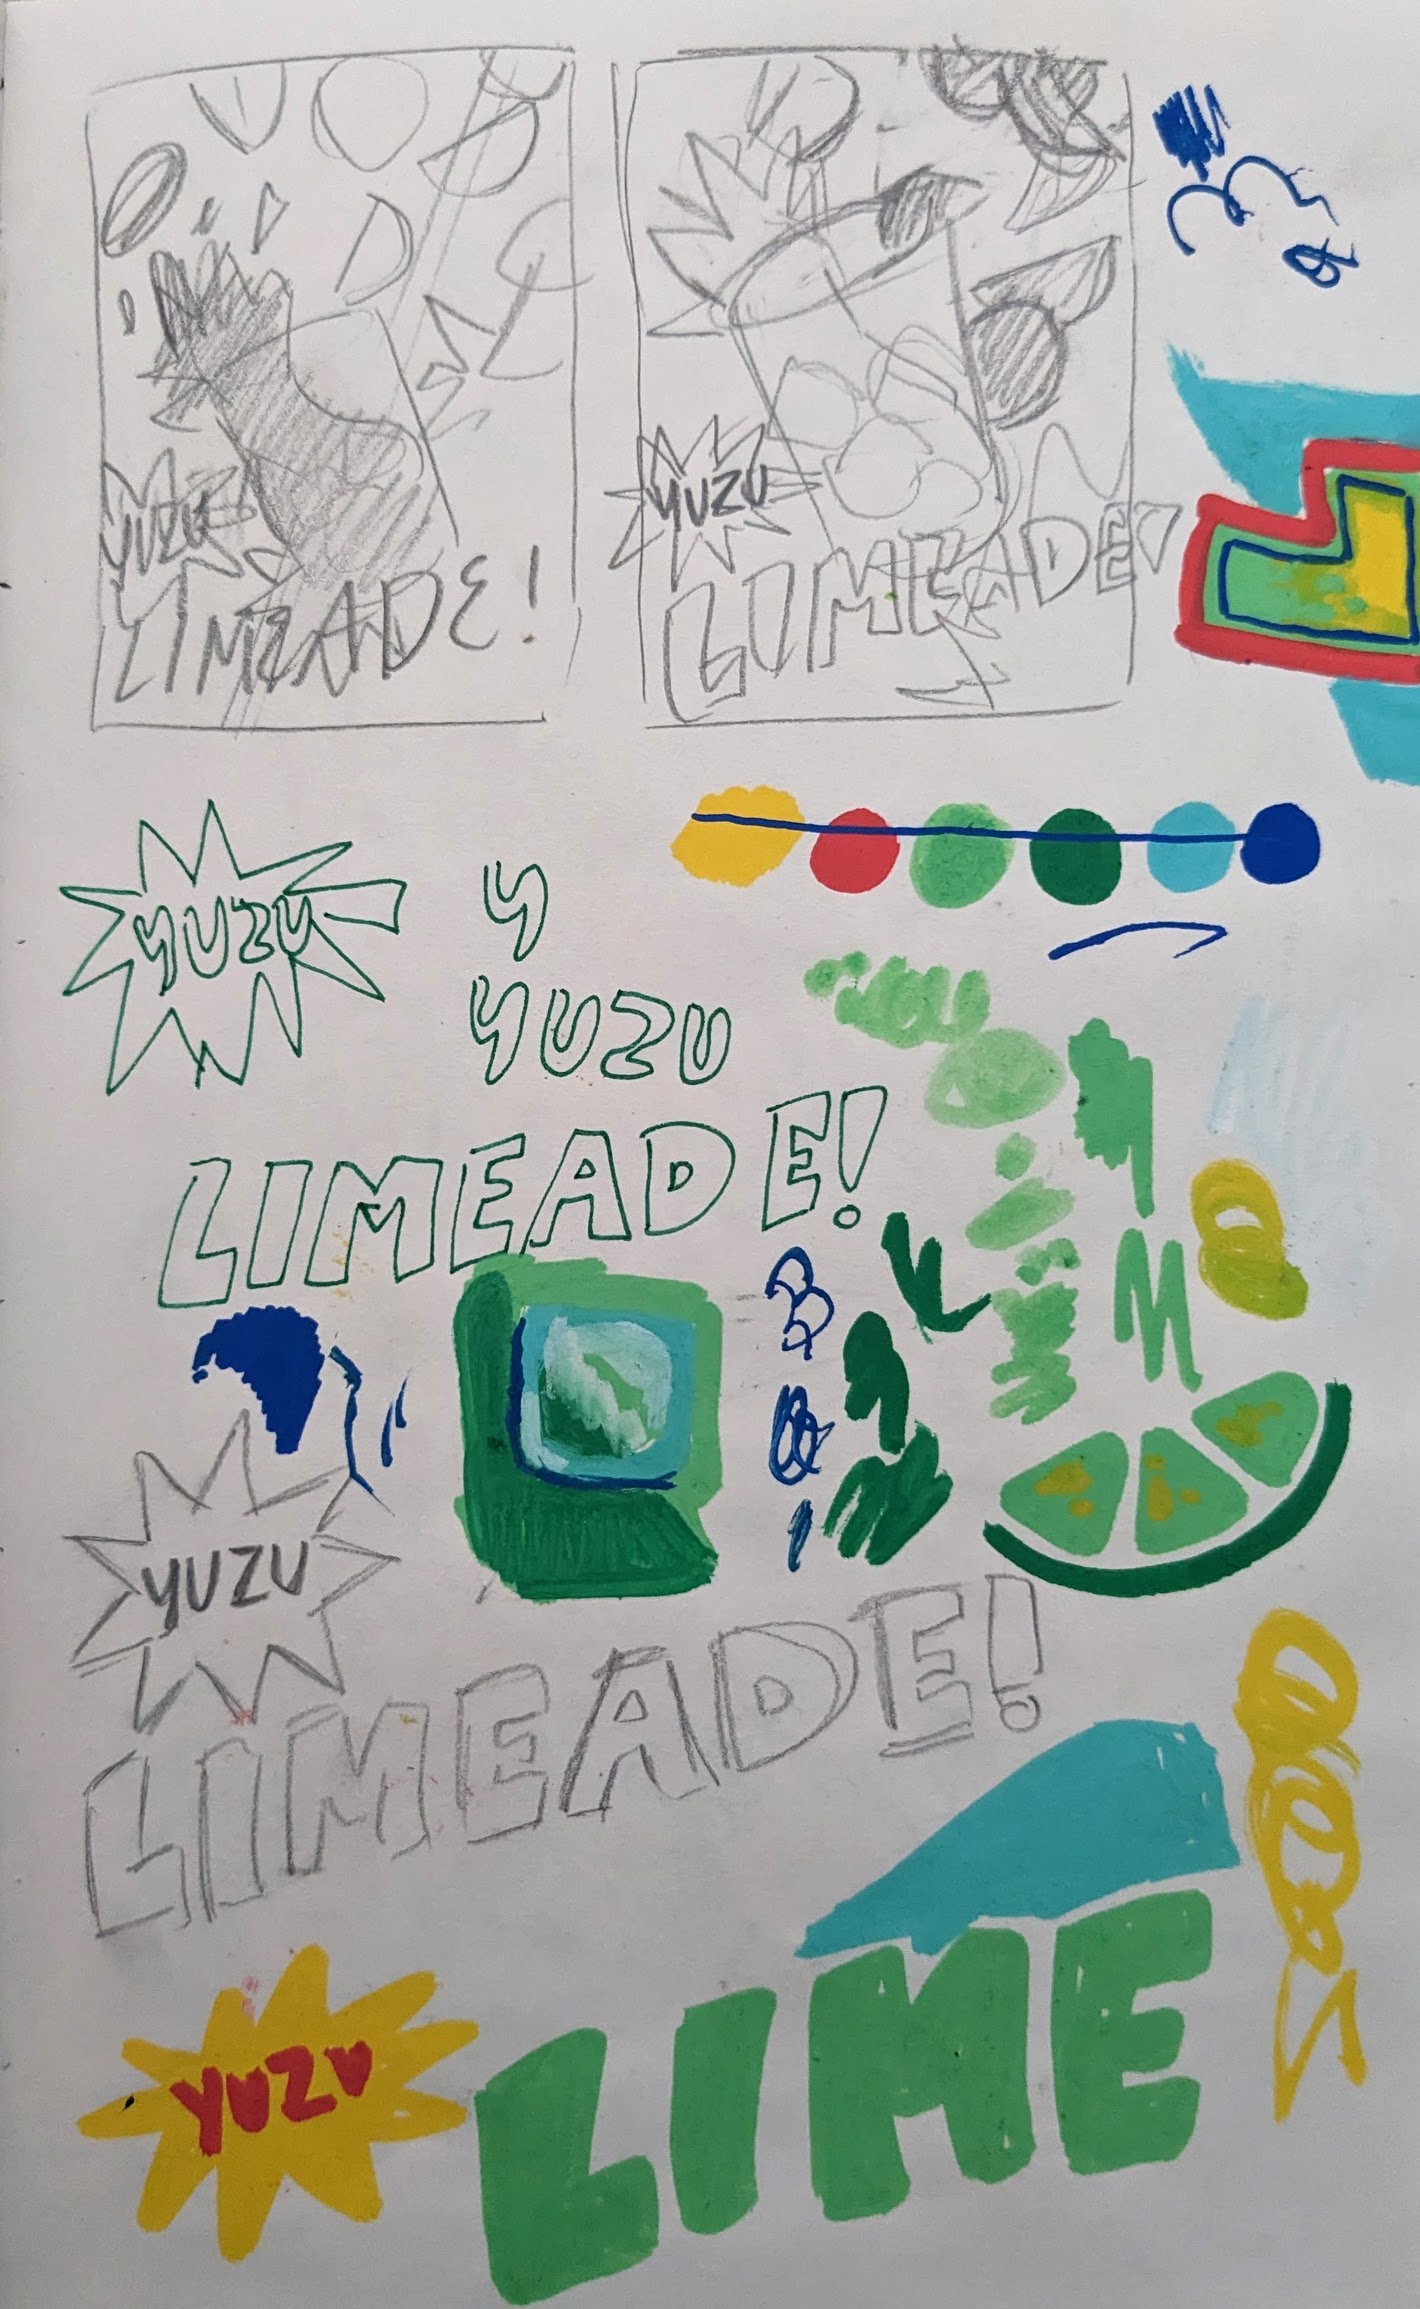 YUZU
LIMEADE!
YUZU
LIMEADE!
YUZU
Y
YUZU
LIMEADE!
YUZU
LIMEADE!
YUZU
LIME